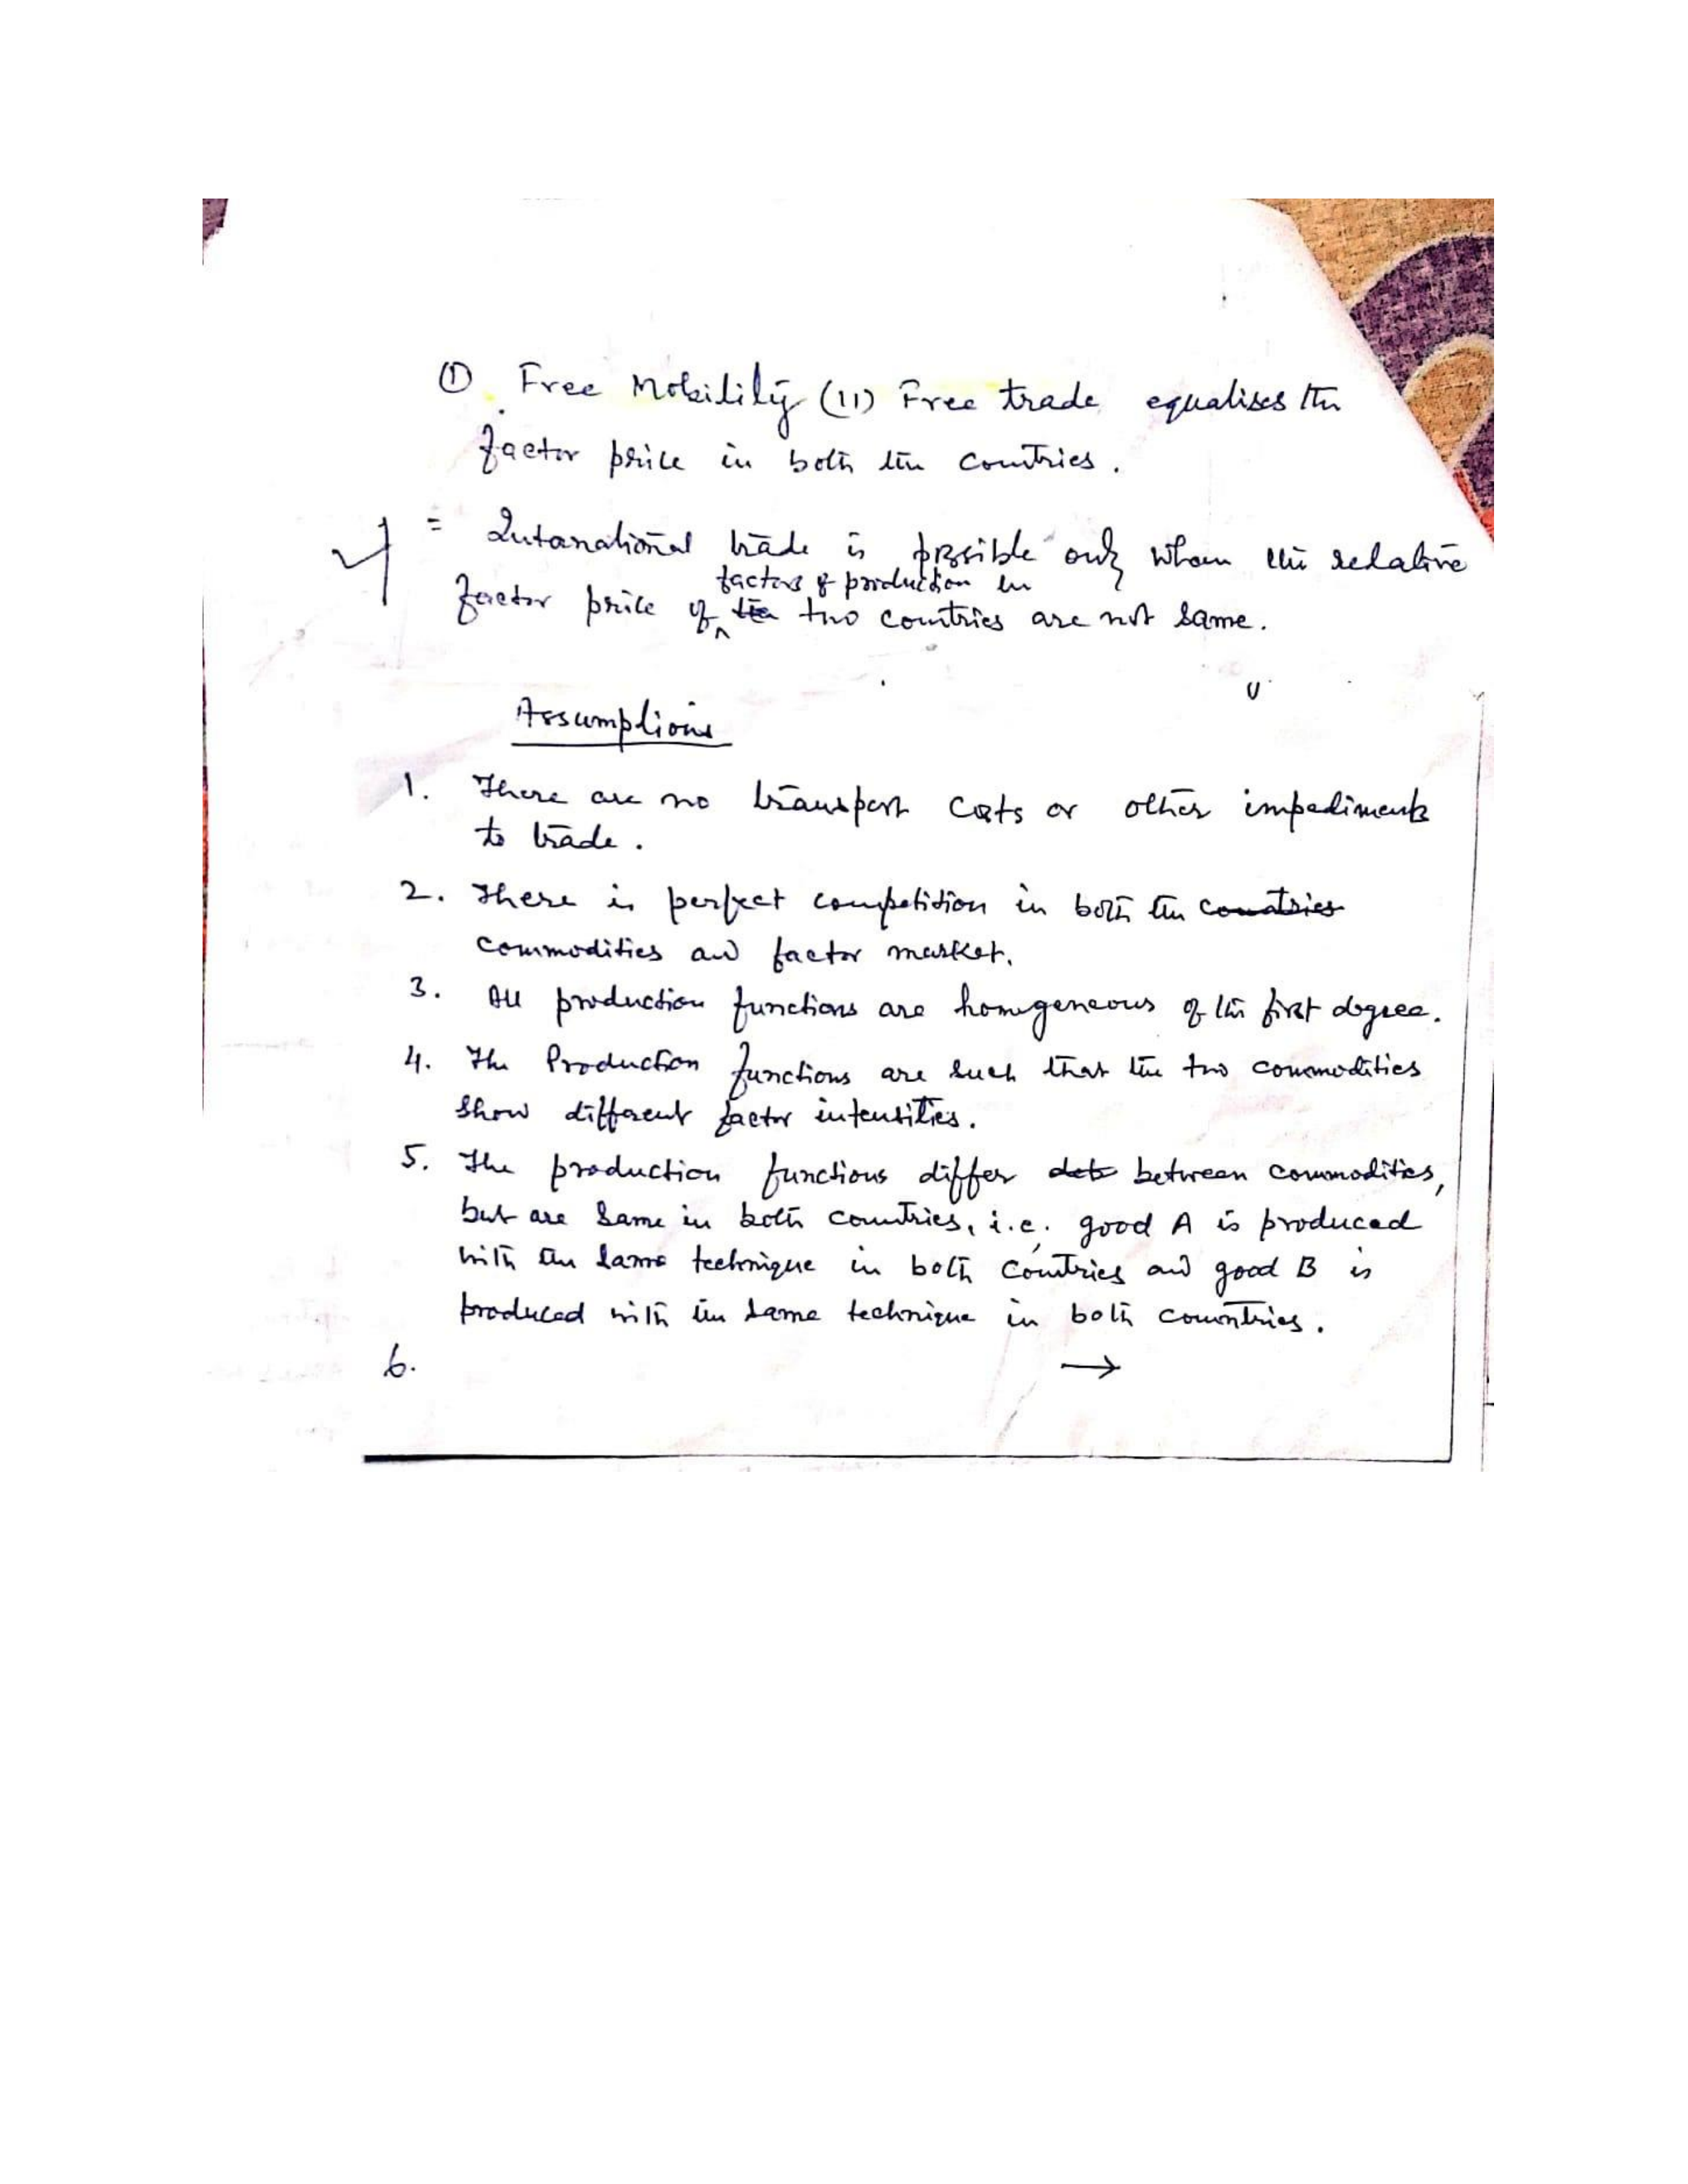 ① Free Mobility (11) Free trade equalises the
factor price in both the countries.
= International trade is possible only when the relative
factors of production in
factor price of the two countries are not same.
Assumptions
1. There are no transport costs or other impediments
to trade.
2. There is perfect competition in both the countries
commodities and factor market.
3. All production functions are homogeneous of the first degree.
4. The Production functions are such that the two commodities
show different factor intensities.
5. The production functions differ between commodities,
but are same in both countries, i.e. good A is produced
with the same technique in both countries and good B is
produced with the same technique in both countries.
6. →